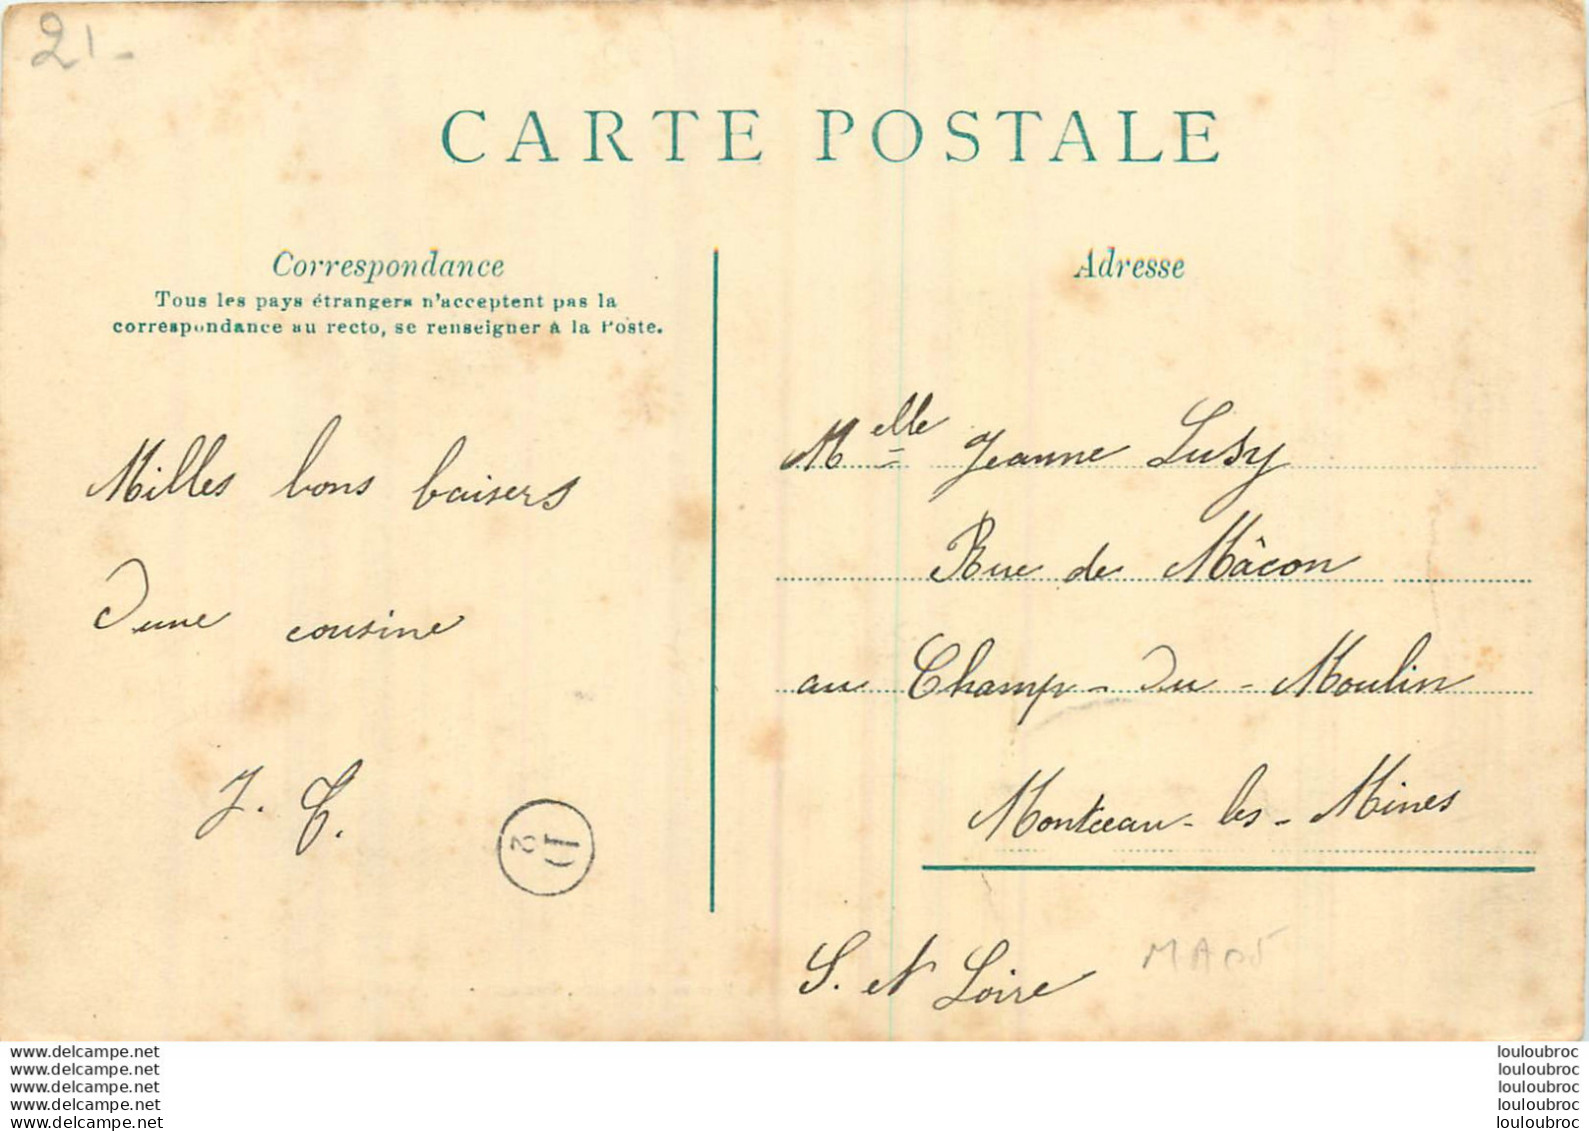 21-
CARTE POSTALE
Correspondance
Tous les pays étrangers n'acceptent pas la
correspondance au recto, se renseigner à la Poste.
Milles bons baisers
d'une cousine
J. C.
D
2
Adresse
Melle Jeanne Lusy
Rue de Mâcon
au Champ-du-Moulin
Montceau-les-Mines
S. et Loire
MA05
www.delcampe.net
www.delcampe.net
www.delcampe.net
www.delcampe.net
www.delcampe.net
louloubroc
louloubroc
louloubroc
louloubroc
louloubroc